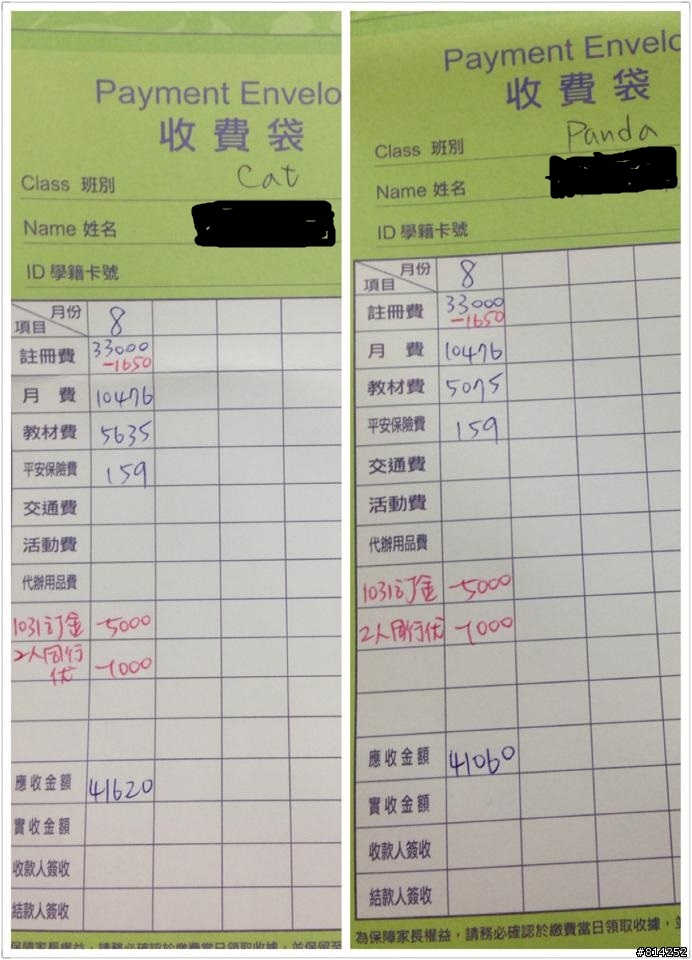 Payment Envelo
收費袋
Class 班別 Cat
Name 姓名
ID 學籍卡號
月份 8
項目
註冊費 33000
-1650
月費 10476
教材費 5635
平安保險費 159
交通費
活動費
代辦用品費
1031訂金 -5000
2人同行 -1000
优
應收金額 41620
實收金額
收款人簽收
結款人簽收
保障家長權益，請務必確認於繳費當日領取收據，並保留至
Payment Envelo
收費袋
Class 班別 Panda
Name 姓名
ID 學籍卡號
月份 8
項目
註冊費 33000
-1650
月費 10476
教材費 5075
平安保險費 159
交通費
活動費
代辦用品費
1031訂金 -5000
2人同行优 -1000
應收金額 41060
實收金額
收款人簽收
結款人簽收
為保障家長權益，請務必確認於繳費當日領取收據，並
#814252